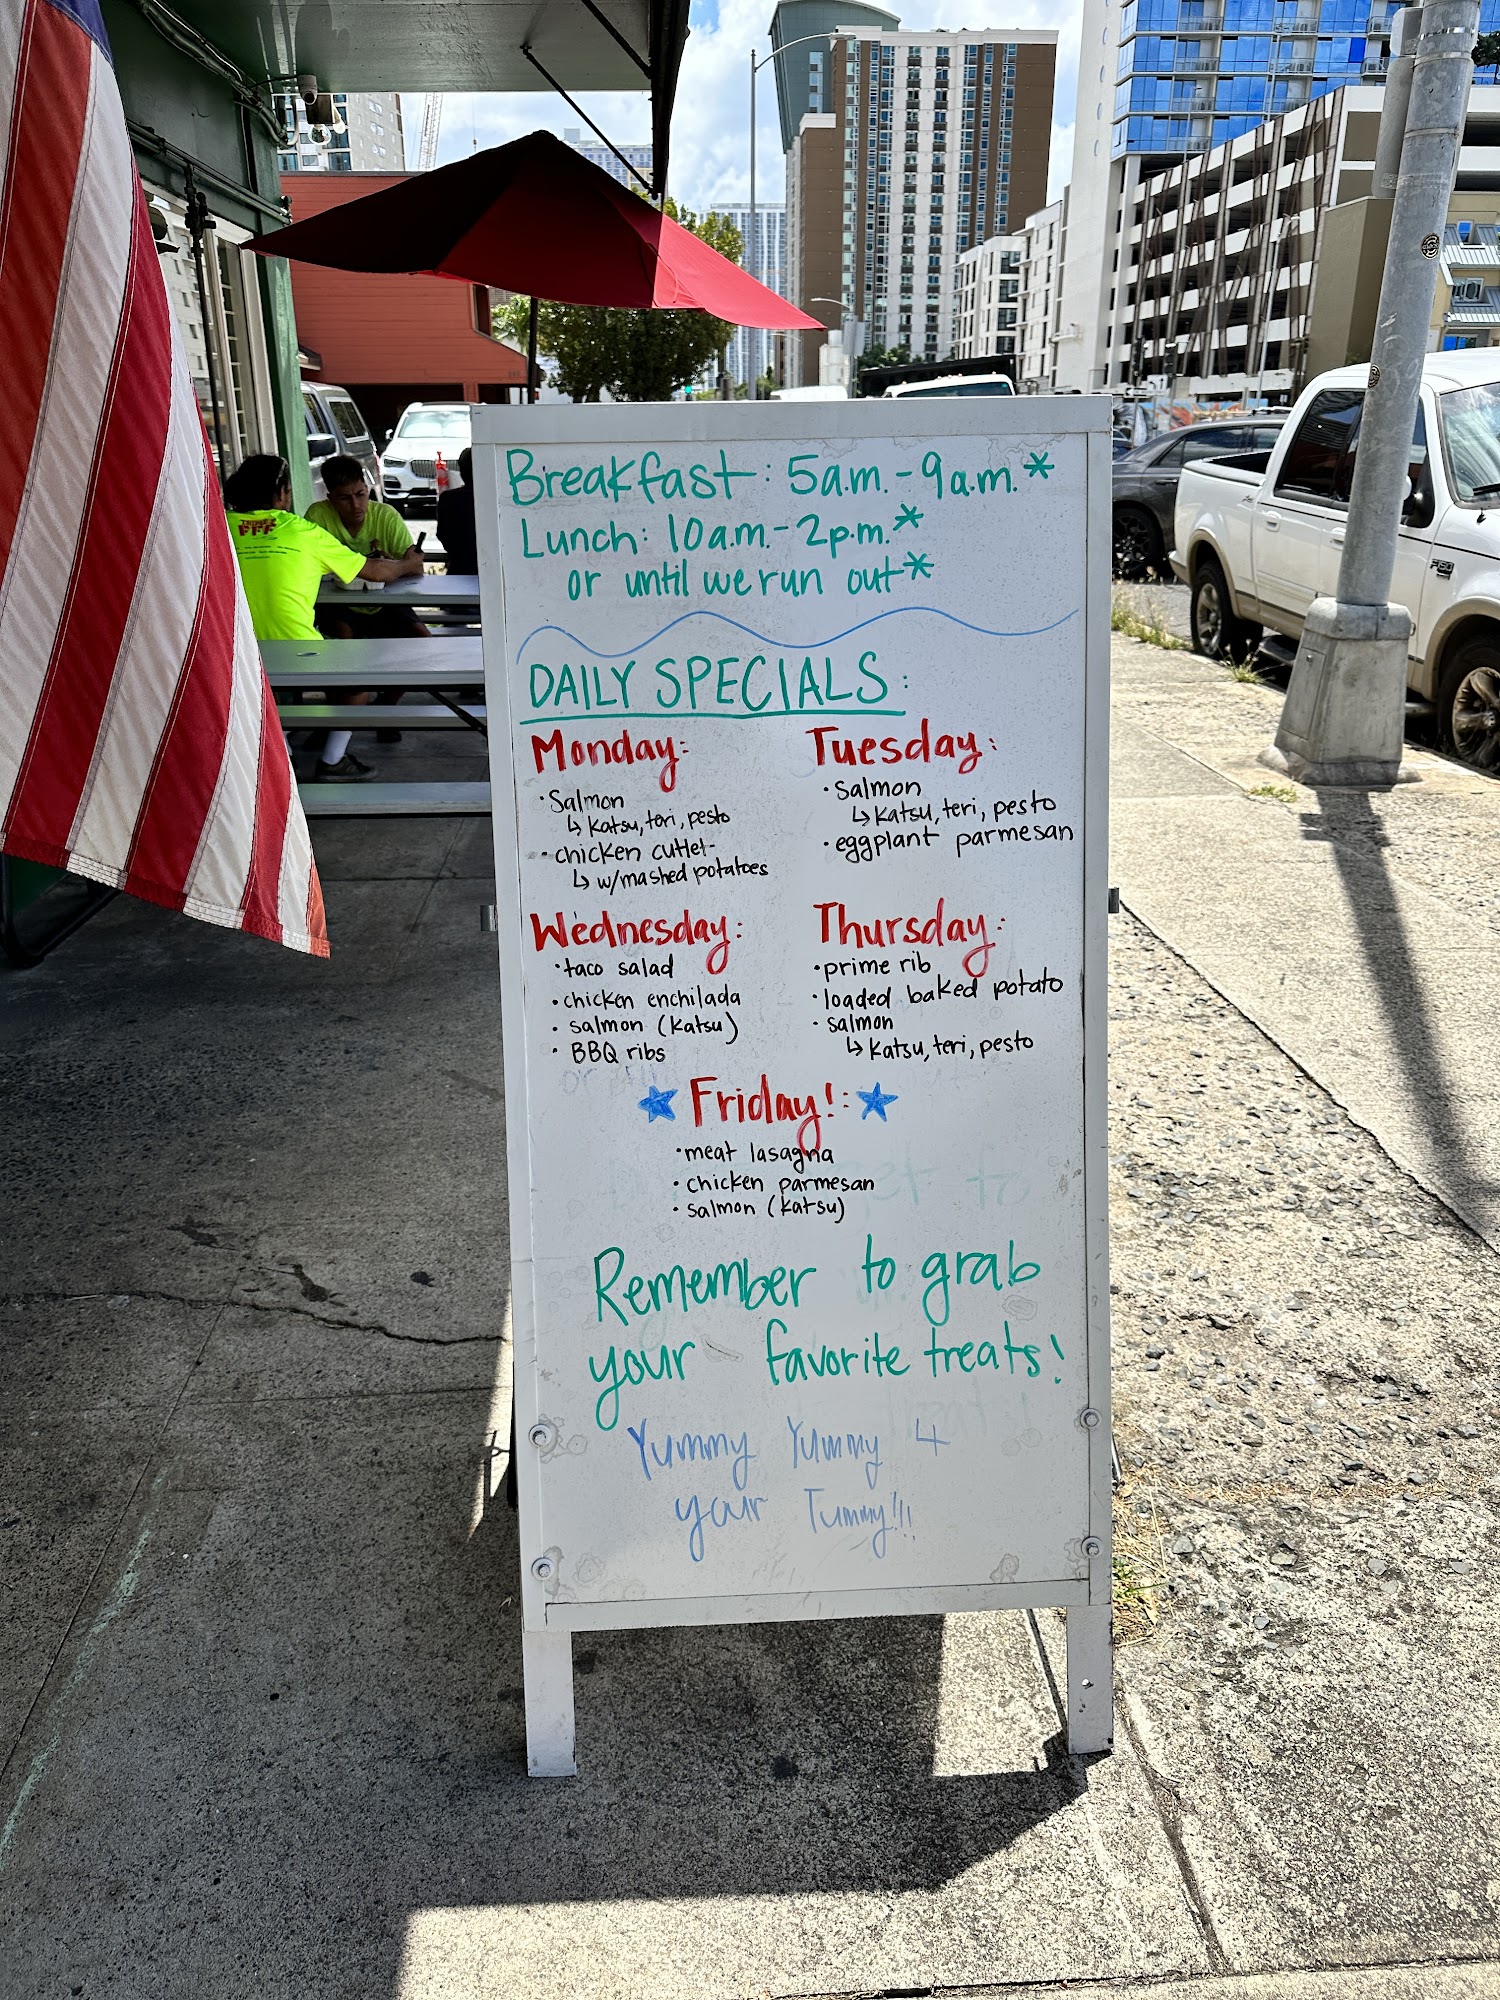 Breakfast: 5a.m.-9a.m.*
Lunch: 10a.m.-2p.m.*
or until we run out*
DAILY SPECIALS:
Monday:
·Salmon
↳ katsu, teri, pesto
·chicken cutlet
↳ w/mashed potatoes
Tuesday:
·salmon
↳ katsu, teri, pesto
·eggplant parmesan
Wednesday:
·taco salad
·chicken enchilada
·salmon (katsu)
·BBQ ribs
Thursday:
·prime rib
·loaded baked potato
·salmon
↳ katsu, teri, pesto
★ Friday!: ★
·meat lasagna
·chicken parmesan
·salmon (katsu)
Remember to grab
your favorite treats!
Yummy Yummy 4
your Tummy!!!
F150